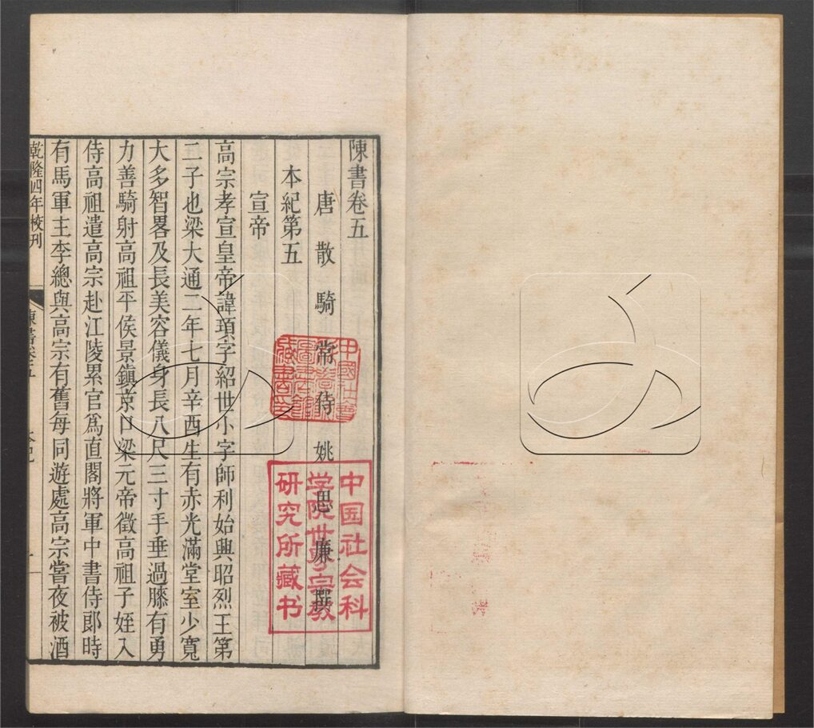 陳書卷五
唐散騎常侍姚思廉撰
本紀第五
宣帝
高宗孝宣皇帝諱頊字紹世小字師利始興昭烈王第
二子也梁大通二年七月辛酉生有赤光滿堂室少寬
大多智畧及長美容儀身長八尺三寸手垂過膝有勇
力善騎射高祖平侯景鎮京口梁元帝徵高祖子姪入
侍高祖遣高宗赴江陵累官爲直閣將軍中書侍郎時
有馬軍主李總與高宗有舊每同遊處高宗嘗夜被酒
乾隆四年校刊
陳書卷五
本紀
一
中國社會
科
圖書館
藏書印
中国社会科
学院世界宗教
研究所藏书